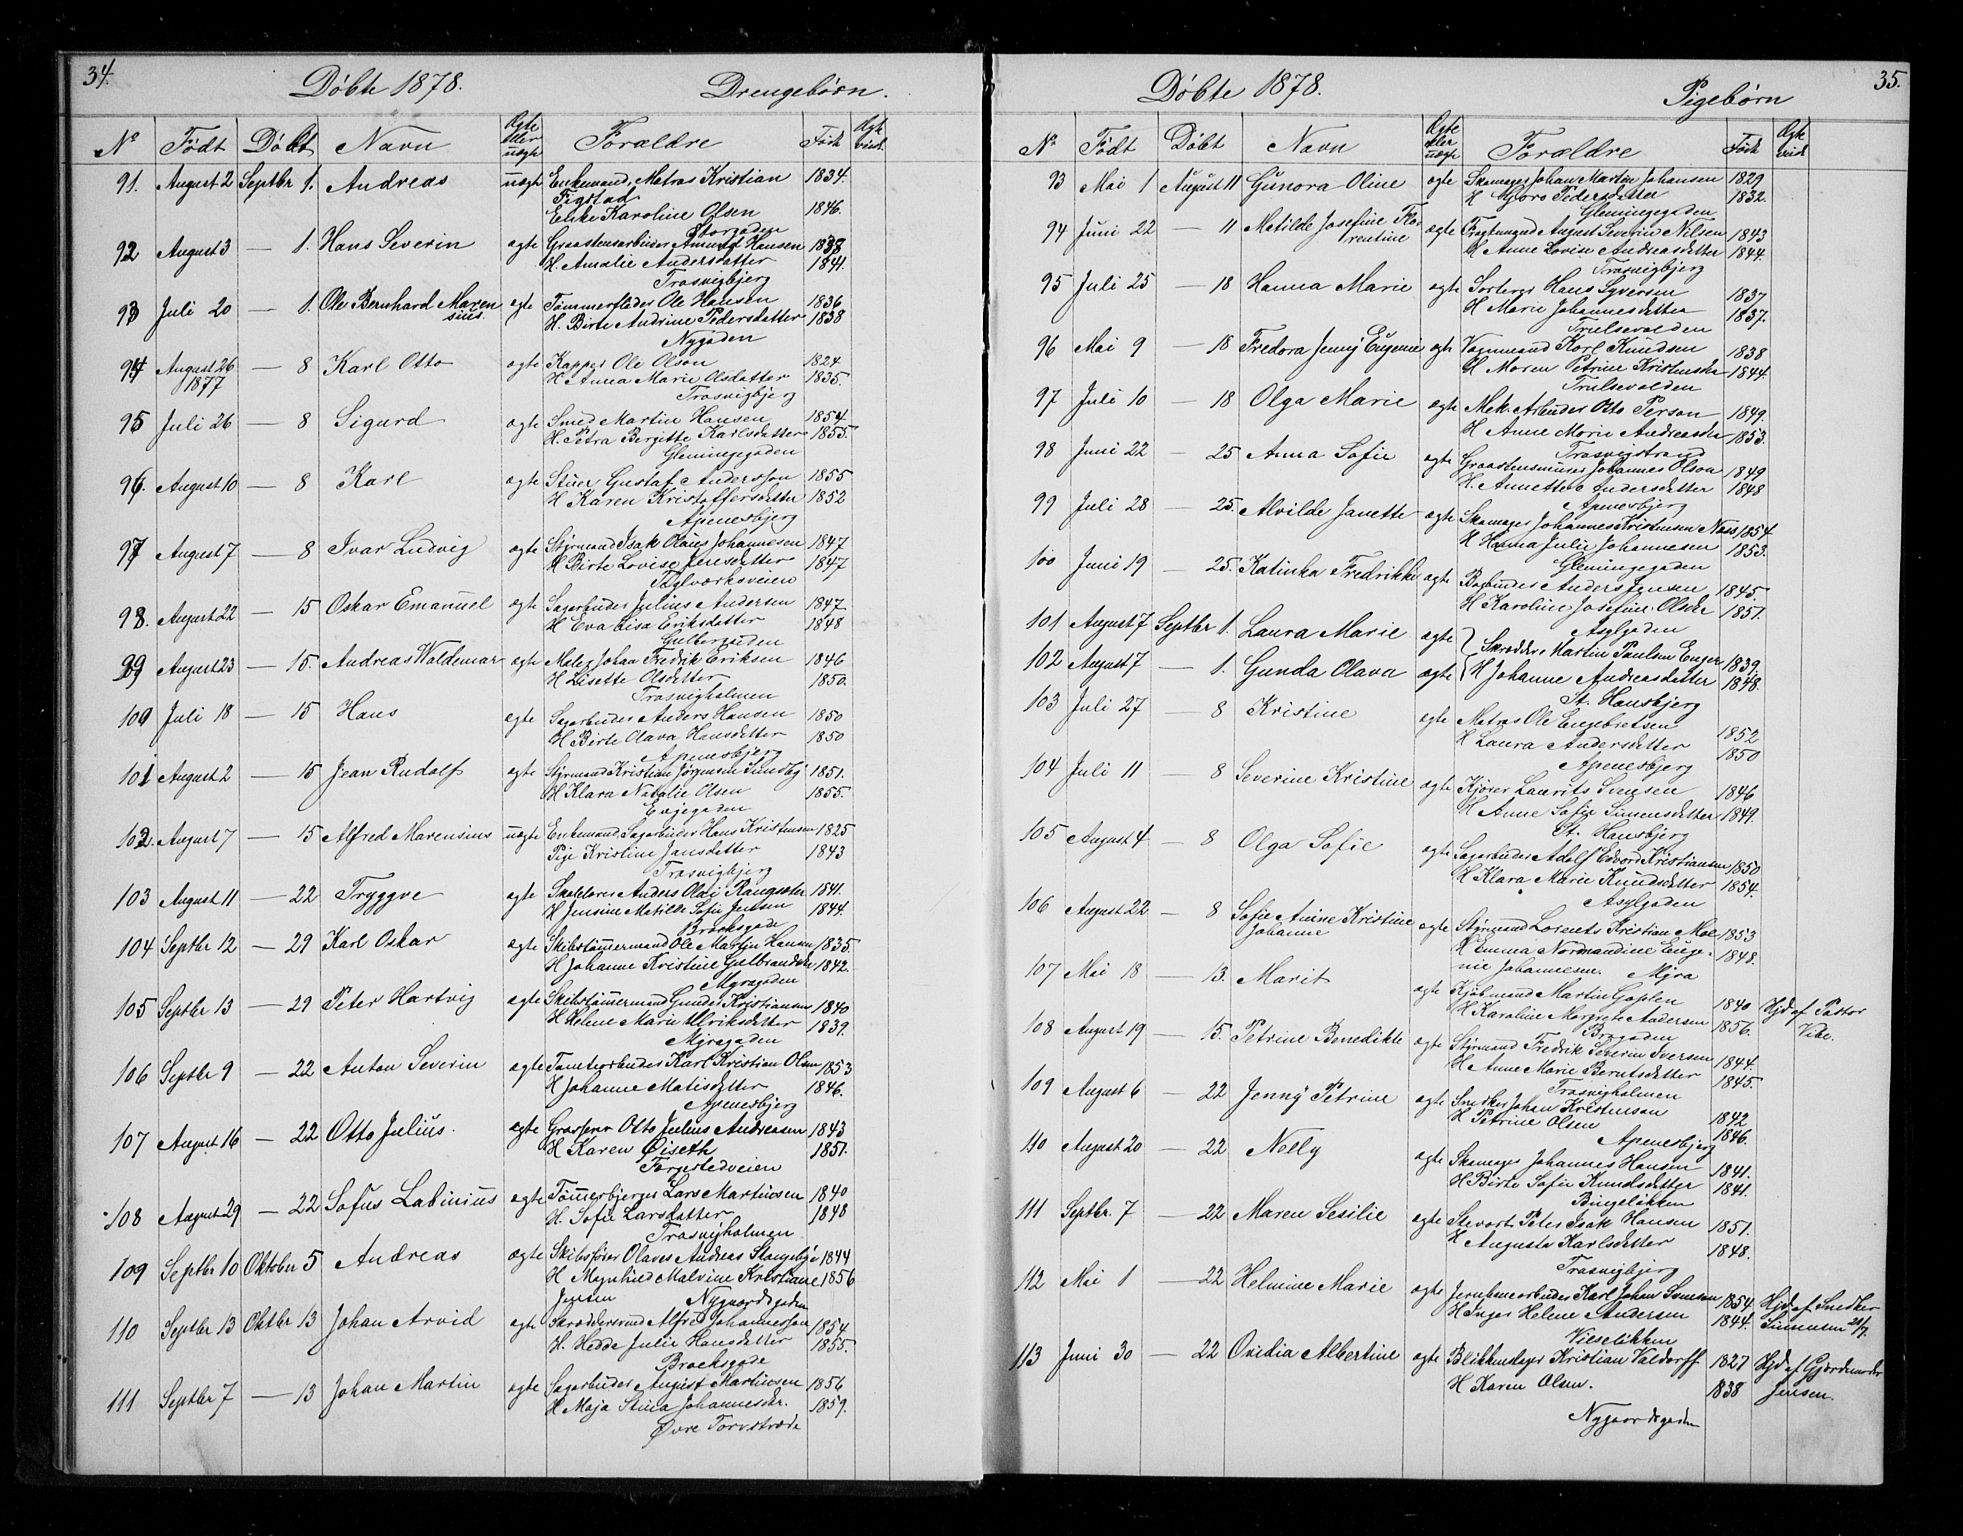 34.
Döbte 1878.
Drengebörn.
No Födt Döbt Navn Ægte eller uægte Forældre Födt
91. August 2 Septbr 1. Andreas uægte Enkemand, Matros Kristian 1834.
Figstad
Enke Karoline Olsen 1846.
Storgaden
92 August 3 — 1. Hans Severin ægte Graastensarbeider Amund Hansen 1838
H. Amalie Andersdatter 1841.
Trosvigbjerg
93 Juli 20 — 1. Ole Bernhard Maren ægte Tömmerflöder Ole Hansen 1836
sius. H. Birte Andrine Pedersdatter 1838
Nygaden
94 August 26 — 8 Karl Otto ægte Kapper Ole Olson 1824
1877 H Anna Marie Olsdatter 1835.
Trosvigbjerg
95 Juli 26 — 8 Sigurd ægte Smed Martin Hansen 1854.
H. Petra Bergitte Karlsdatter 1855.
Glemingegaden
96. August 10 — 8 Karl ægte Stuer Gustaf Andersson 1855
H Karen Kristoffersdatter 1852
Apenesbjerg
97 August 7 — 8 Ivar Ludvig ægte Styrmand Isak Olaus Johannesen 1847
H Birte Lovise Jensdatter 1847
Teglværksveien
98. August 22 — 15 Oskar Emanuel ægte Sagarbeider Julius Andersen 1847
H Eva Lisa Eriksdatter 1848
99 August 23 — 15. Andreas Waldemar ægte Maler Johan Fredrik Eriksen 1846
H Lisette Olsdatter 1850.
Trosvigholmen
100 Juli 18 — 15 Hans ægte Sagarbeider Anders Hansen 1850
H Birte Olava Hansdatter 1850
Apenesbjerg
101 August 2 — 15 Jean Rudolf ægte Styrmand Kristian Jörgensen Sundby 1851.
H Klara Natalie Olsen 1855.
Enjegaden
102. August 7 — 15 Alfred Marensius uægte Enkemand, Sagarbeider Hans Kristensen 1825
Pige Kristine Jansdatter 1843
Trosvigbjerg
103 August 11 — 22 Tryggve ægte Anders Olai 1841.
H Jensine Matilde Sofie Jensen 1844.
Brooksgade
104 Septbr 12 — 29 Karl Oskar ægte Skibstömmermand Ole Martin Hansen 1835
H Johanne Kristine Gulbrandsdr 1842.
Myragaden
105 Septbr 13 — 29 Peter Hartvig ægte Skibstömmermand Gunder Kristiansen 1840
H Helene Marie Ulriksdatter 1839.
Myragaden
106 Septbr 9 — 22 Anton Severin ægte Tomtearbeider Karl Kristian Olsen 1853
H Johanne Matisdatter 1846.
Apenesbjerg
107 August 16 — 22 Otto Julius. ægte Otto Julius Andreasen 1843
H Karen Öiseth 1851.
Torgstedveien
108 August 29 — 22 Sofus Labinius ægte Lars Martinsen 1840
H. Sofie Larsdatter 1848
Trosvigholmen
109 Septbr 10 Oktober 5 Andreas ægte Skibsförer Olaves Andreas Stangebye 1844
H Magnhild Malvine Kristiane 1856
Jensen Nygaardsgaden
110 Septbr 13 Oktbr 13 Johan Arvid ægte Skræddersvend Alfred Johannessen 1854.
H. Hedda Julie Hansdatter 1855.
Brochsgade
111 Septbr 7 — 13 Johan Martin ægte Sagarbeider August Martinsen 1856
H Maja Stina Johannesdr. 1859.
Övre Torvstræde
35.
Döbte 1878.
Pigebörn
No Födt Döbt Navn Ægte eller uægte Forældre Födt
93 Mai 1 August 11 Gunora Oline ægte Skomager Johan Martin Johansen 1829
H Pedersdatter 1832.
Glemingegaden
94 Juni 22 — 11 Matilde Josefine Flo- ægte Fragtmand August Severin Nilsen 1843
rentine H Anne Lovise Andreasdatter 1844.
Trosvigbjerg
95 Juli 25 — 18 Hanna Marie ægte Sorterer Hans Syversen 1837
H Marie Johannesdatter 1837.
Trulsevolden
96 Mai 9 — 18 Fredora Jenny Eugenie ægte Vognmand Karl Knudsen 1838
H Maren Petrine Kristensdr 1844.
Trulsevolden
97 Juli 10 — 18 Olga Marie ægte Mek. Arbeider Otto Person 1849.
H Anne Marie Andreasdr 1853.
Trosvigstrand
98 Juni 22 — 25 Anna Sofie ægte Graastensmurer Johannes Olson 1849
H. Annette Andersdatter 1848
Apenesbjerg
99 Juli 28 — 25. Alvilde Janette ægte Skomager Johannes Kristensen Næss 1854.
H Hanna Julie Johannesen 1853.
Glemingegaden
100 Juni 19 — 25. Katinka Fredrikke ægte Bogbinder Anders Jensen 1845.
H Karoline Josefine Olsdr 1851.
Asylgaden
101 August 7 Septbr 1. Laura Marie ægte Skrædder Martin Paulsen Enger 1839.
102 August 7 — 1. Gunda Olava ægte H Johanne Andreasdatter 1848.
St. Hansbjerg
103 Juli 27 — 8 Kristine ægte Matros Ole Engebretsen 1852
H Laura Andersdatter 1850
Apenesbjerg
104 Juli 11 — 8 Severine Kristine ægte Kjörer Laurits Svensen 1846
H Anne Sofie Simensdatter 1849.
St. Hansbjerg
105 August 4 — 8 Olga Sofie ægte Sagarbeider Adolf Edvard Kristiansen 1850
H Klara Marie Knudsdatter 1854.
Asylgaden
106 August 22 — 8 Sofie Anine Kristine ægte Styrmand Lorents Kristian Moe 1853
Johanne H Emma Normandine Euge- 1848.
nie Johannesen. Myra
107 Mai 18 — 13. Marit ægte Kjöbmand Martin Goplen 1840 Hjd af Pastor
H Karoline Margrete Andersen 1856. Vibe.
Brogaden
108 August 19 — 15. Petrine Benedikte ægte Styrmand Fredrik Severin Iversen 1844.
H Anne Marie Berntsdatter 1845.
Trosvigholmen
109 August 6 — 22 Jenny Petrine ægte Snedker Johan Kristenson 1842
H Petrine Olsen 1846.
Apenesbjerg
110 August 20 — 22 Nelly ægte Skomager Johannes Hansen 1841.
H Birte Sofie Knudsdatter 1841.
Bingeløkken
111 Septbr. 7 — 22 Maren Sesilie ægte Stevart Peter Isak Hansen 1851.
H Augusta Karlsdatter 1848.
Trosvigbjerg
112 Mai 1 — 22 Helmine Marie ægte Jernbanearbeider Karl Johan Svenson 1854. Hjd af Snedker
H Inger Helene Andersen 1844. Simensen 20/7.
113 Juni 30 — 22 Ovidia Albertine ægte Blikkenslager Kristian Valdorff 1827 Hjd af Gjordemoder
H Karen Olsen. 1838 Jensen.
Nygaardsgaden